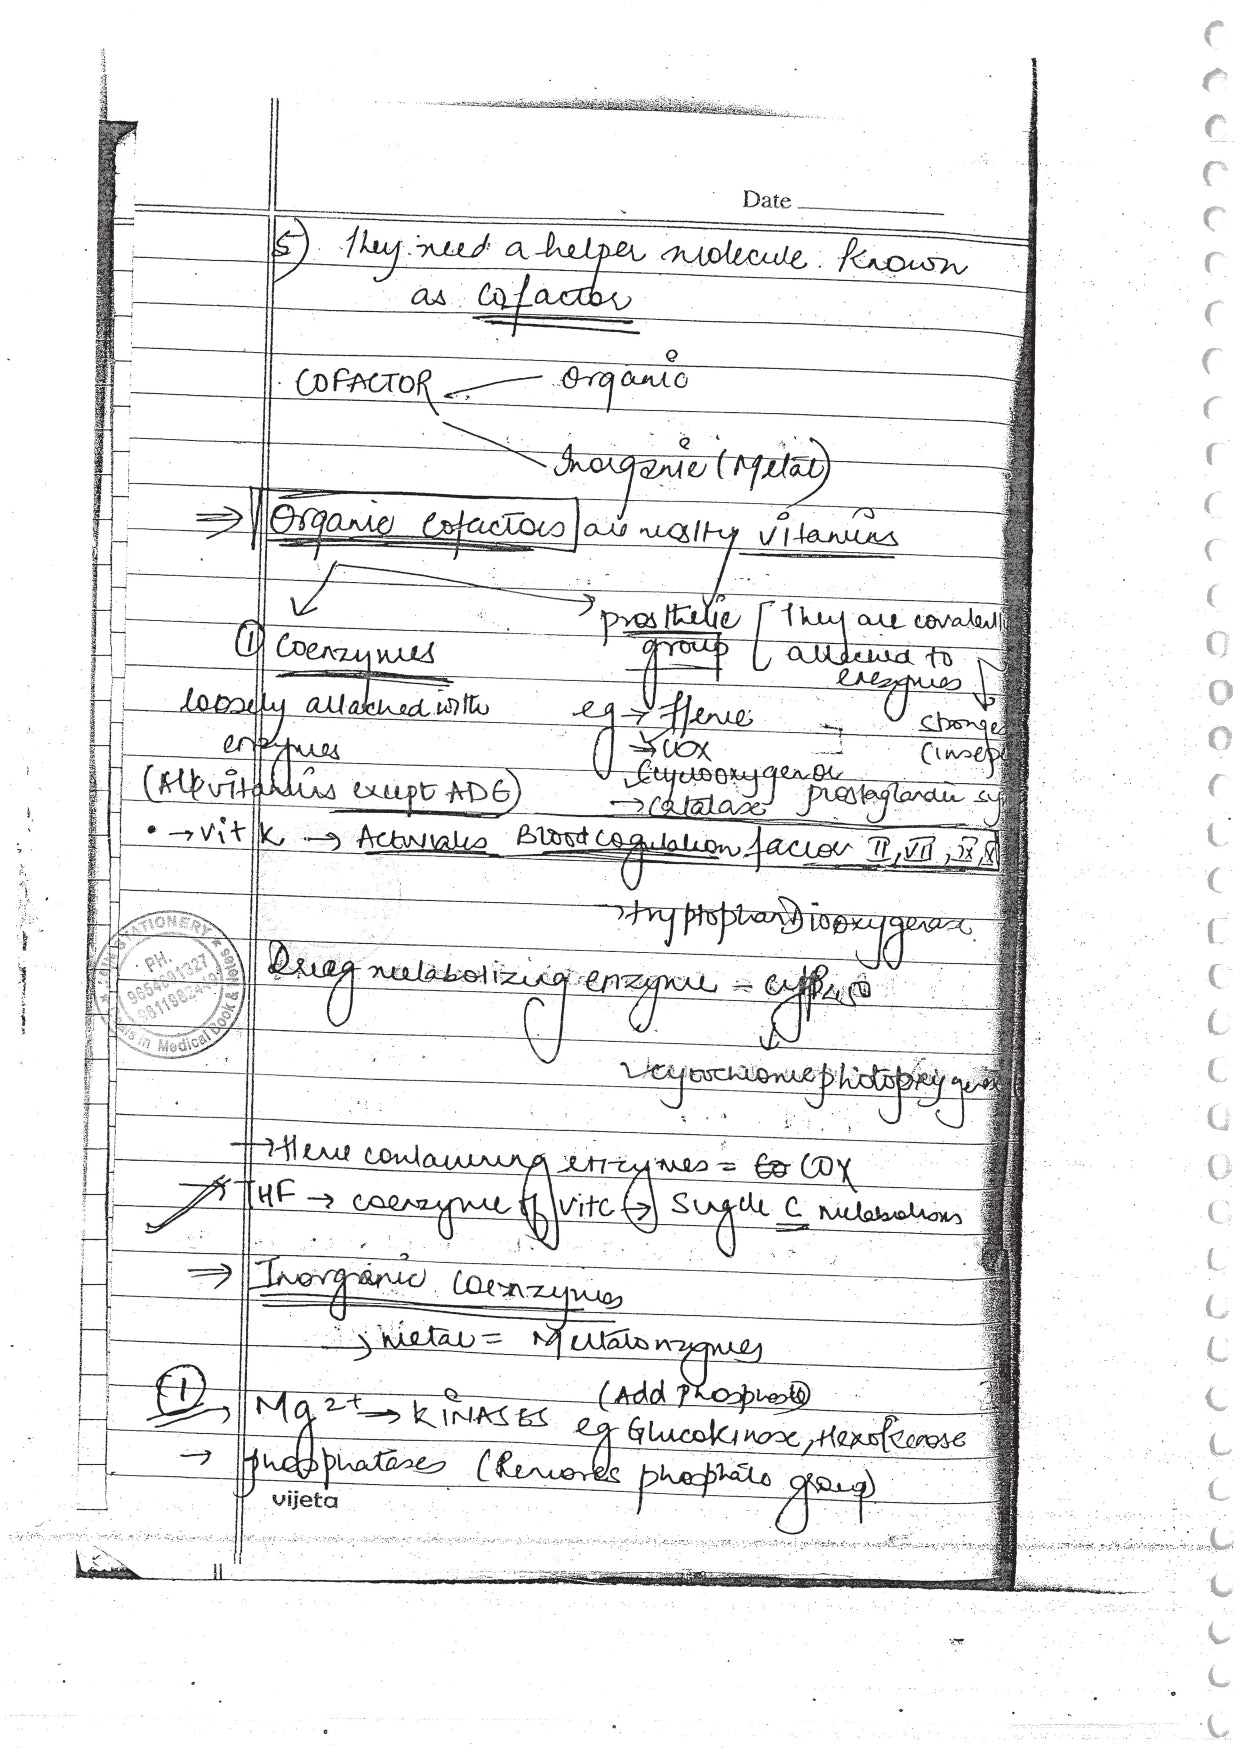 Date
5) They need a helper molecule. Known
as Cofactor
COFACTOR
Organic
Inorganic (Metal)
⇒ Organic Cofactors are mostly vitamins
① Coenzymes
loosely attached with
enzymes
(All vitamins except ADE)
prosthetic
group
[They are covalentl
attached to
enzymes
stronges
(insep
eg → Heme
→ COX
Cyclooxygenase
prostaglandin sy
→ Catalase
• → Vit K → Activates Blood cogulation factor II, VII, IX, X
→ tryptophan Diooxygenase
STATIONERY
PH.
in Medical Book &
Drug metabolizing enzyme = cyp450
→ Heme containing enzymes = COX
→ THF → coenzyme of vitc → Single C metabolisms
⇒ Inorganic Coenzymes
→ metal = Mettalonzymes
(Add Phosphate)
① Mg2+ → KINASES eg Glucokinase, Hexokinase
→ phosphatases (Removes phosphate group)
vijeta